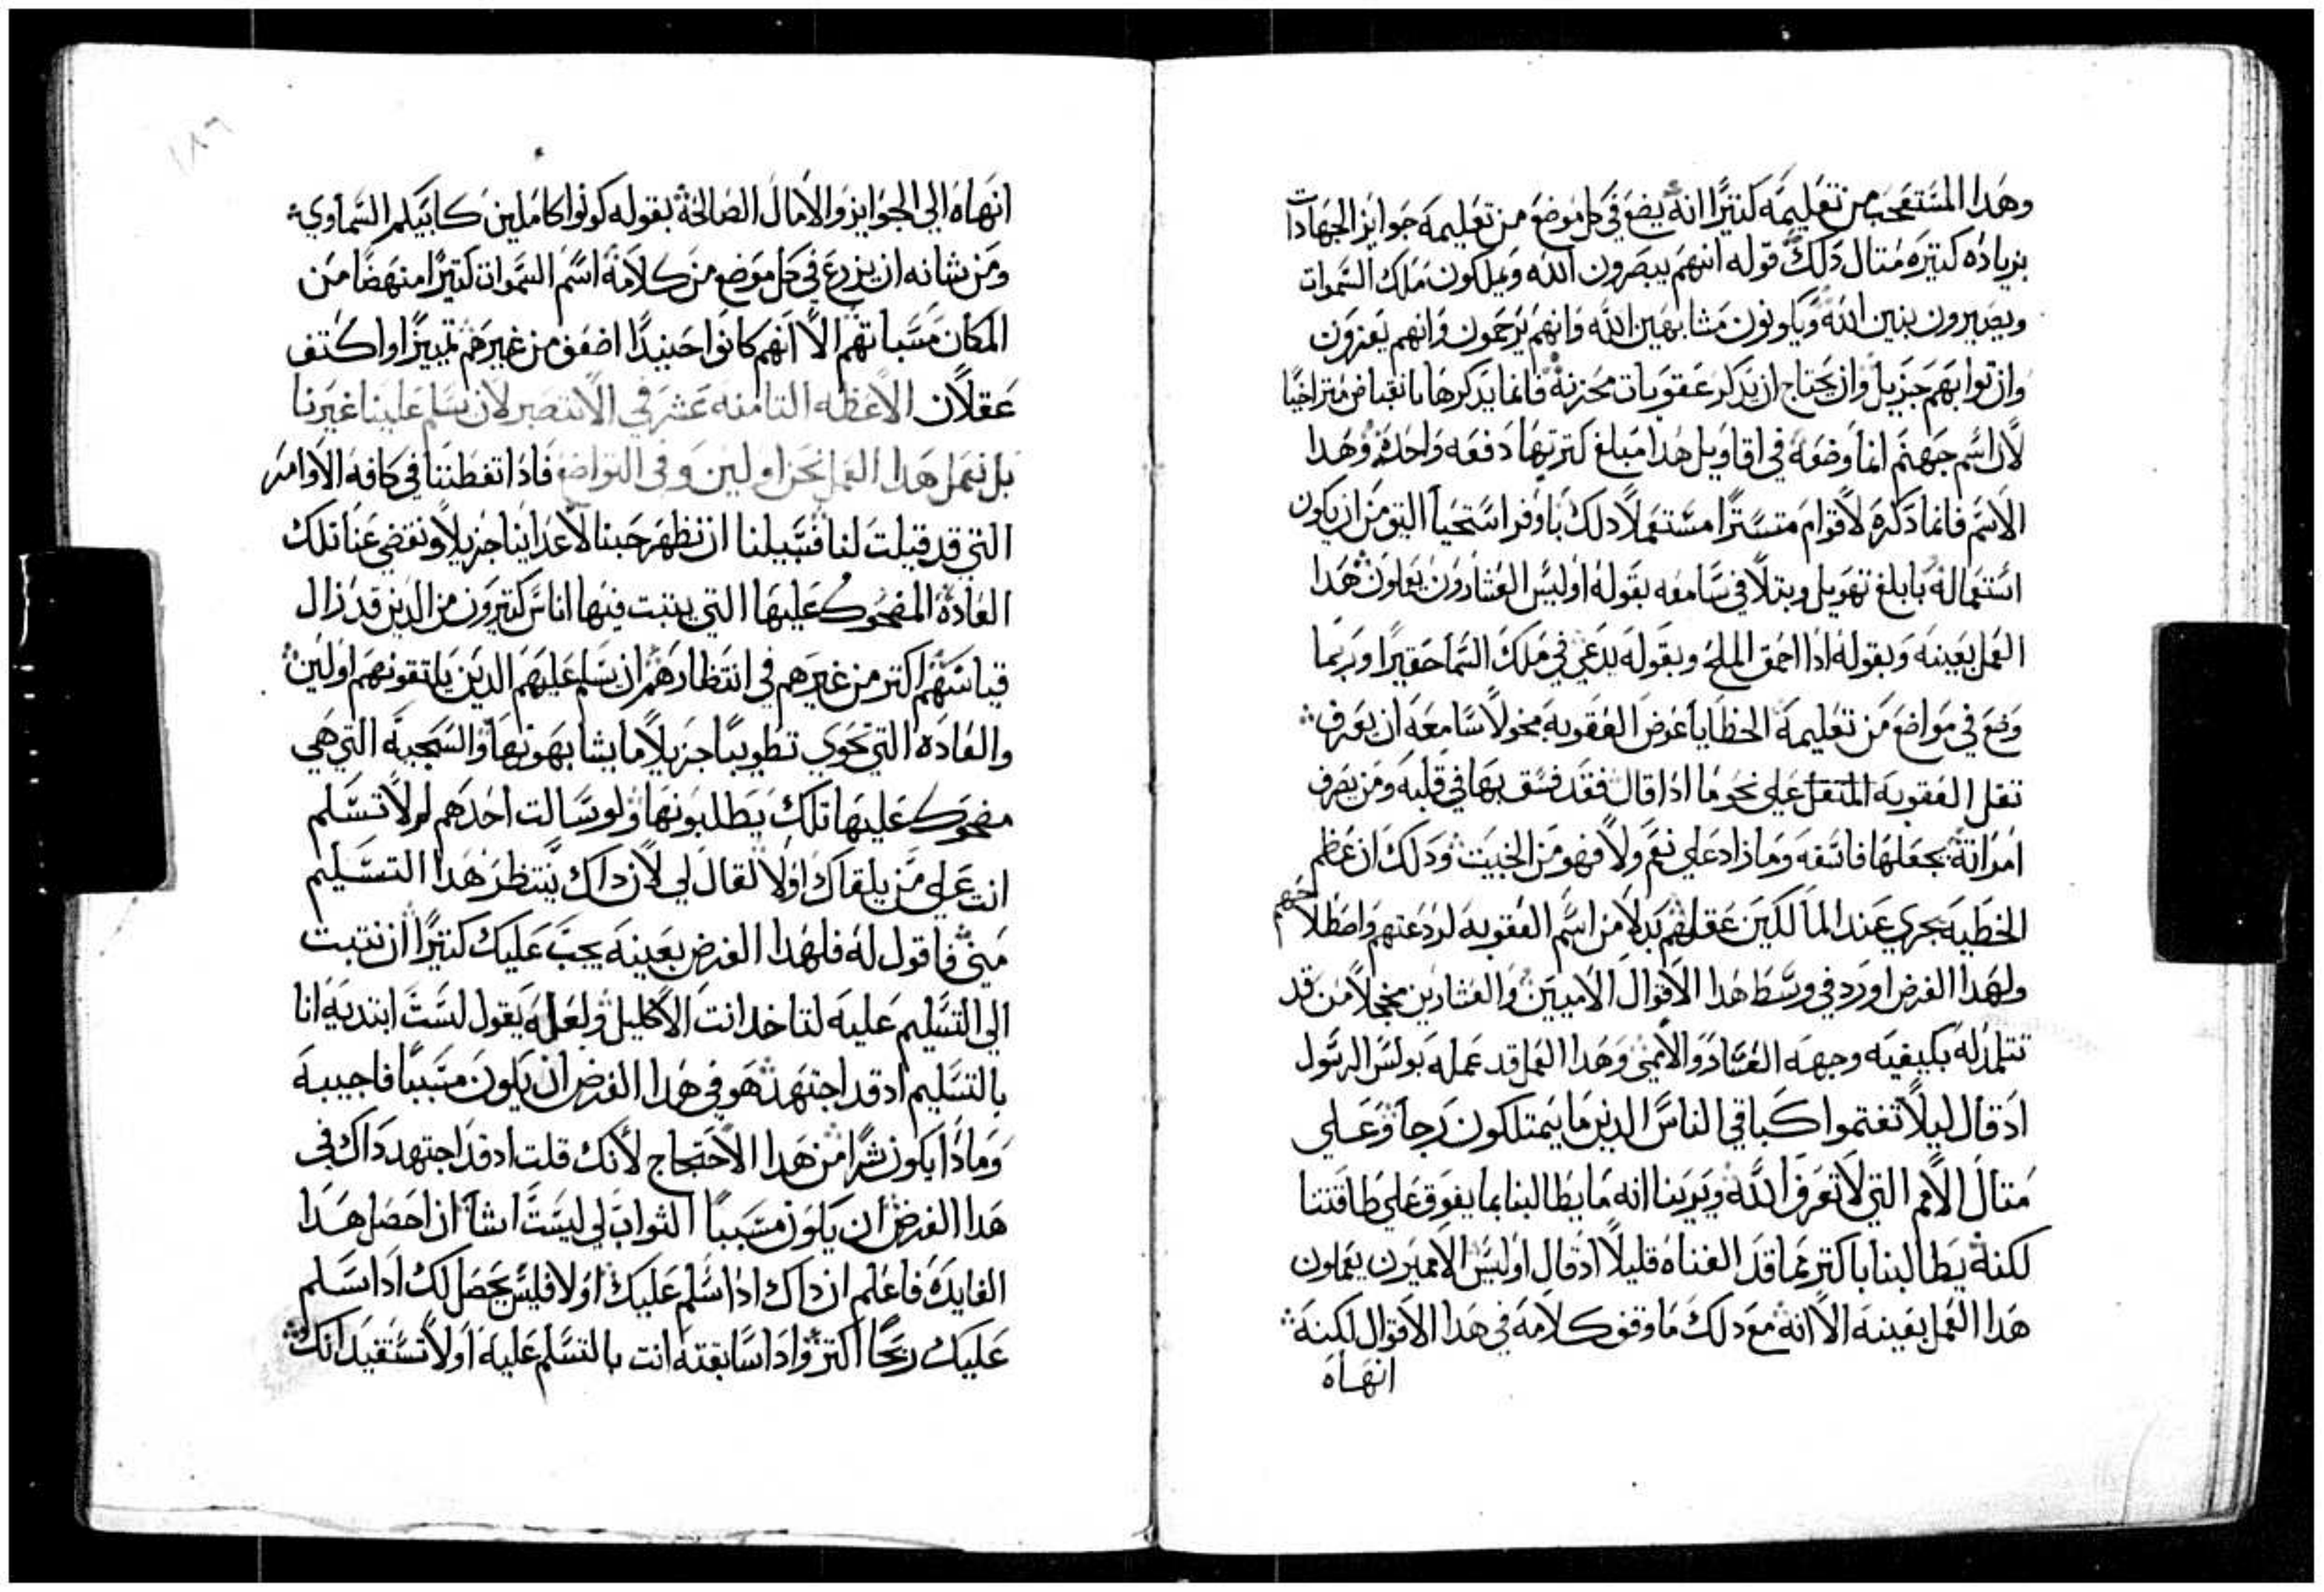 وهدا المستعجب من تعليمه كتيرًا انه يضع في كل موضع من تعليمه جوايز الجهادات
بزياده كتيره متال دلك قوله انهم يبصرون الله ويملكون ملك السموات
ويصيرون بنين الله ويكونون مشابهين الله وانهم يرحمون وانهم يعزون
وان توابهم جزيل وان يحتاج ان يدكر عقوبات محزنه فانما يدكرها بانقباض متراخيًا
لان اسم جهنم انما وضعه في اقاويل هدا مبلغ كترتها دفعه واحده وهدا
الاسم فانما دكره لاقوام متسترًا مستعملًا دلك باوفر استحيا اليق من ان يكون
استعماله بابلغ تهويل ويتلافي سامعه بقوله اوليس العشارون يعملون هدا
العمل بعينه وبقوله ادا احمق الملح وبقوله يدعي في ملك السما حقيرًا وربما
وضع في مواضع من تعليمه الخطايا عوض العقوبه مخولًا سامعه ان يعرف
تقل العقوبه المتقل علي نحو ما ادا قال فقد فسق بها في قلبه ومن يصرف
امراته يجعلها فاسقه وما زاد علي نعم ولا فهو من الخبيت ودلك ان عظم
الخطيه يجري عند المالكين عقلهم بدلًا من اسم العقوبه لردعهم واصطلاحهم
ولهدا الغرض اورد في وسط هدا الاقوال الاميين والعشارين مخجلًا من قد
تتلمد له بكيفيه وجهه العشار والامي وهدا العمل قد عمله بولس الرسول
اد قال ليلا تغتموا كباقي الناس الدين ما يمتلكون رجا وعلي
متال الامم التي لا تعرف الله ويرينا انه ما يطالبنا بما يفوق علي طاقتنا
لكنه يطالبنا باكتر مما قد الفناه قليلًا اد قال اوليس الامميون يعملون
هدا العمل بعينه الا انه مع دلك ما وقف كلامه في هدا الاقوال لكنه
انهاه
١٨٦
انهاه الي الجوايز والامال الصالحه بقوله كونوا كاملين كابيكم السماوي
ومن شانه ان يزرع في كل موضع من كلامه اسم السموات كتيرًا منهضًا من
المكان مسباتهم الا انهم كانوا حينيدًا اضعف من غيرهم تمييزًا واكتف
عقلًا الاعظه التامنه عشر في الا ننتصر لان يسلم علينا غيرنا
بل نعمل هدا العمل نحن اولين وفي التواضع فادا تفطننا في كافه الاوامر
التي قد قيلت لنا فسبيلنا ان نظهر حبنا لاعداينا جزيلًا ونقضي عنا تلك
العاده المضحوك عليها التي يتبت فيها اناس كتيرون من الدين قد زال
قياسهم اكتر من غيرهم في انتظارهم ان يسلم عليهم الدين يلتقونهم اولين
والعاده التي تحوي تطويبًا جزيلًا ما يشابهونها والسجيه التي هي
مضحوك عليها تلك يطلبونها ولو سالت احدهم لم لا تسلم
انت علي من يلقاك اولا لقال لي لان داك ينتظر هدا التسليم
مني فاقول له فلهدا الغرض بعينه يجب عليك كتيرًا ان تتبت
الي التسليم عليه لتاخد انت الاكليل ولعله يقول لست ابتديه انا
بالتسليم اد قد اجتهد هو في هدا الغرض ان يكون مسببًا فاجيبه
ومادا يكون شرًا من هدا الاحتجاج لانك قلت اد قد اجتهد داك في
هدا الغرض ان يكون مسببًا الثواب لي ليست اشا ان احصل هدا
الفايده فاعلم ان داك ادا سلم عليك اولا فليس يحصل لك ادا سلم
عليك ربحًا اكتر وادا سابقته انت بالتسلم عليه اولا تستفيد انك